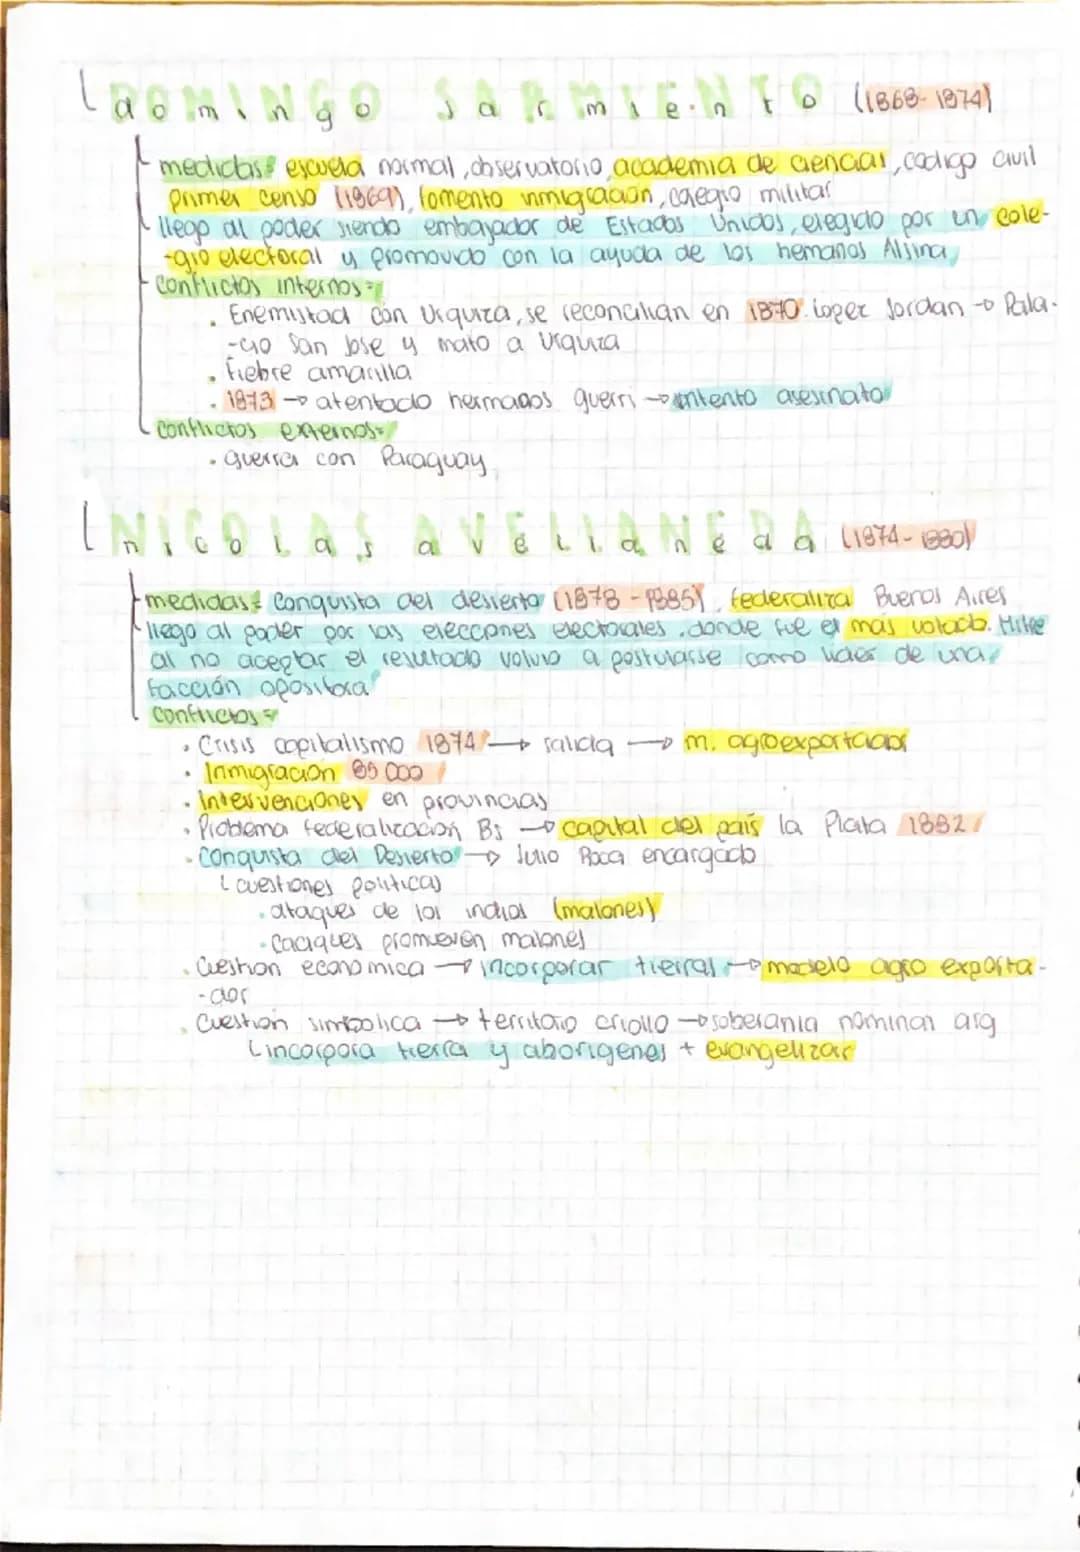 DOMINGO SARMIENTO
domingo sarmiento (1868-1874)
medidas: escuela normal, observatorio, academia de ciencias, codigo civil
primer censo (1869), fomento inmigración, colegio militar
llego al poder siendo embajador de Estados Unidos, elegido por un cole-
-gio electoral y promovido con la ayuda de los hemanos Alsina,
conflictos internos=
• Enemistad con Urquiza, se reconcilian en 1870. Lopez Jordan → Pala-
-cio San Jose y mato a Urquiza
• fiebre amarilla
• 1873 → atentado hermanos guerri → intento asesinato
conflictos externos=
• guerra con Paraguay
NICOLAS AVELLANEDA
nicolas avellaneda (1874-1880)
medidas: Conquista del desierto (1878-1885), federaliza Buenos Aires
llego al poder por las elecciones electorales, donde fue el más votado. Mitre
al no aceptar el resultado volvio a postularse como lider de una
facción opositora
conflictos=
• Crisis capitalismo 1874 → salida → m. agroexportador
• Inmigración 85 000
• Intervenciones en provincias
• Problema federalización Bs → capital del país la Plata 1882
• Conquista del Desierto → Julio Roca encargado
cuestiones politicas
• ataques de los indios (malones)
• Caciques promueven malones
• Cuestion economica → incorporar tierras → modelo agro exporta-
-dor
• Cuestion simbolica → territorio criollo → soberania nominan arg
incorpora tierra y aborigenes + evangelizar